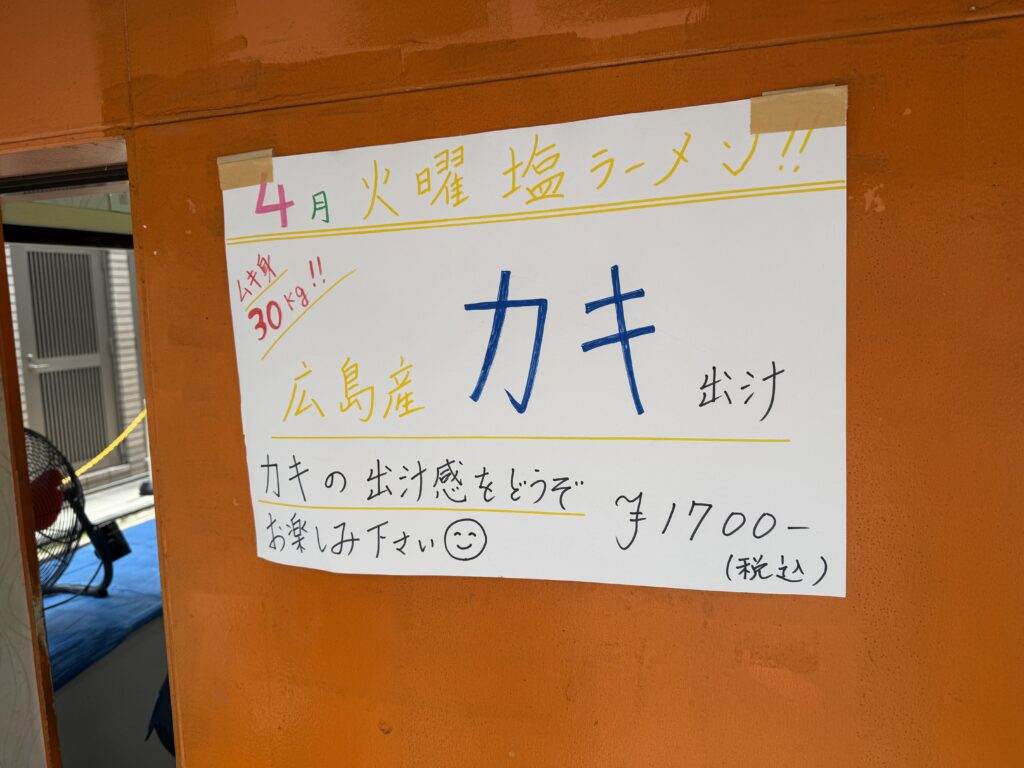 4月 火曜 塩ラーメン!!
ムキ身
30kg!!
広島産 カキ 出汁
カキの出汁感をどうぞ
お楽しみ下さい
¥1700-
(税込)